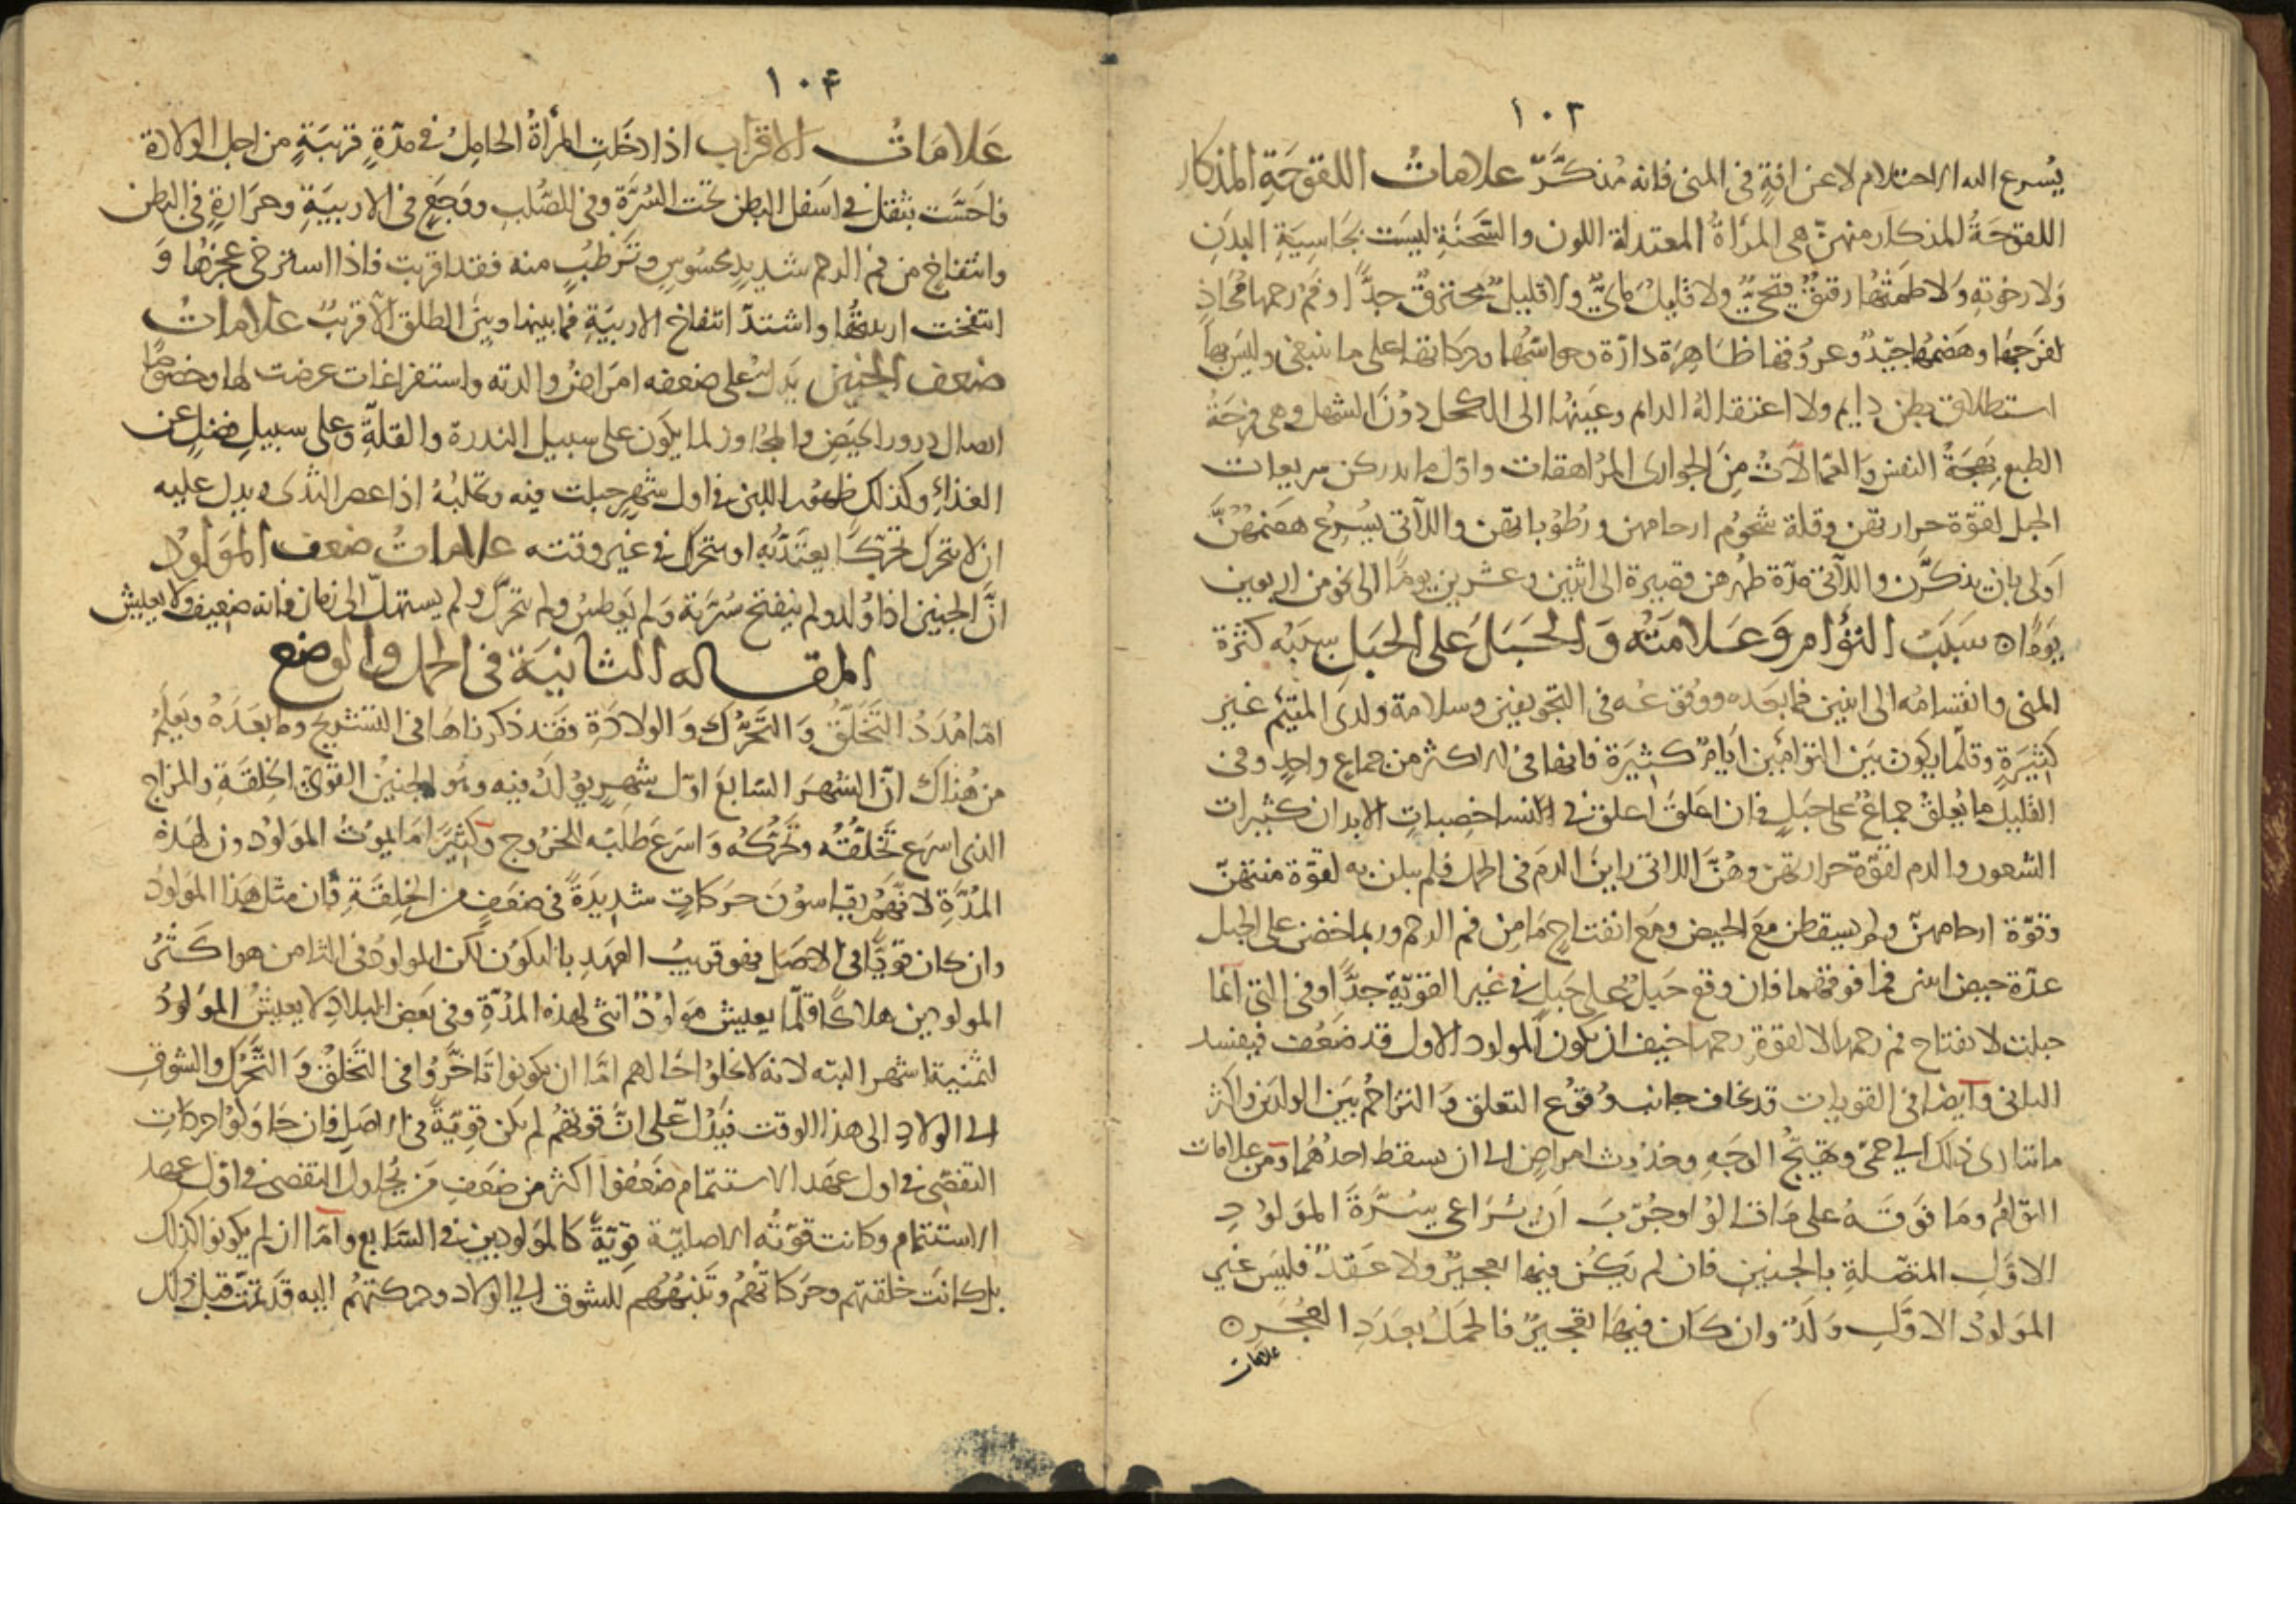 ١٠٣
يُسرع اليه الاحتلام لا عن افةٍ في المنى فانه مُذكَّرٌ علاماتُ اللقوحَةِ المذكار
اللقوحَةُ المذكار منهنّ هي المرأةُ المعتدلة اللون والسَّحنَةِ ليسَت بجَاسِيَةِ البدَنِ
وَلا رخوتهِ وَلا طمثُهَا رقيقٌ قيحيٌّ ولا قليلٌ مَايّ ولا قليلٌ محترقٌ جدًّا وفمُ رحمها مُحَاذٍ
لفرجهَا وهَضمُها جيّدٌ وعروقها ظاهِرَة دارّة وحواسُّها وحركاتها على ما ينبغى وليسَ بهَا
استطلاق بطن دايم ولا اعتقاله الدايم وعَينُها الى الكحل دُونَ الشهل وهى فرِحَةُ
الطبع بَهِجَةُ النفس وَالعَمّالاتُ مِنَ الجوارى المرُاهقات واوّل ما يدركن سريعات
الحبل لقوّة حرارتهن وقلة شحُوم ارحامهن ورُطُوباتهن واللآتى يُسرِعُ هضمُهُنَّ
اَولى بان يذكّرن واللآتى مدّة طهرهن قصيرة الى اثنين وعشرين يومًا الى نحو من اربعين
يَومًا ٥ سَبَبُ التؤام وَعَلامَتُه وَالحَبَلِ عَلى الحبَل سببُه كثرة
المنى وانقسامُه الى اثنين فما بعَده ووُقوعُه في التجويفين وسلامة ولدى المتئم غير
كَثيرَةٍ وقلّما يكون بَين التوامَين ايَامٌ كثيرَة فانهما في الاكثر من جماع واحدٍ وفى
القليل ما يُعلقُ جماعٌ على حبَلٍ فان اعلقَ اعلق في النسا خصِبات الابدان كثيرات
الشعور والدم لقوّة حرارتهن وهُنَّ اللاتى رايْنَ الدمَ في الحمل فلم يبلن به لقوّة منتهنّ
وقوّة ارحامهنّ ولم يسقطن مَع الحيض ومَع انفتاحٍ مَا مِن فم الرحم وربما حضن على الحبل
عدّة حيض اثنى فما فوقهما فان وقع حَبلٌ على حَبلٍ في غير القويّة جدًّا وفى التى انما
حبلت لانفتاح فم رحمها لا لقوة رحمها خيف ان يكون المولود الاول قد ضعُف فيفسد
الثانى وايضا في القويات قد يخاف جانب وُقوع التعلق وَالتزاحُم بَين الولدَين واكثر
ما يتادى ذلك الى حمّى وتهيّج الوَجهِ وحدُوث امراض الى ان يسقط احدُهُما ومن علامات
التوامُ ومَا فَوقَهُ على مَا قالوُا وجُرّبَ اَن يُرَاعى سُرّةَ المَولوُدِ
الاوّلِ المتصلةِ بالجنين فان لم يَكُن فيها تعجيرٌ ولا عَقدٌ فليسَ غير
المَولودُ الاوَّلِ وَلَدٌ وان كَان فيهَا تعجيرٌ فالحمَلُ بعَدَدِ العُجَر ٥
علامات
١٠۴
عَلامَاتُ الاقراب اذا دخَلَتِ المرأةُ الحامِلُ في مدّةٍ قريبَةٍ من اجل الولادة
فاحَسَّت بثقلٍ في اسَفل البَطن تحت السُّرَّةِ وفى الصُّلبِ ووَجَعٍ في الاربيَةِ وحرَارَةٍ في البطن
وانتفاخٍ من فم الرحم شديدٍ محسُوسٍ وتَرَطّبٍ منه فقد اقربت فاذا استرخى عجزُها وَ
انتفخت اربيتُها واشتدّ انتفاخ الاربيَةِ فما بينها وبينَ الطلق الّا قريبٌ علاماتُ
ضعف الجنين يَدلُّ على ضعفه امرَاضُ والدته واستفراغات عرضت لها وخصُوصًا
اتصال درور الحَيض والجُاوز لما يكون على سبيل الندرة والقلّةِ وعلى سبيلِ فضلٍ عن
الغذاءِ وكذلك ظهُور اللبن في اول شهرٍ حبلت فيه وتحلبُهُ اذا عصر الثدى ويدل عليه
ان لا يتحرك تحرّكًا يعتدّبه او يتحرك في غير وقته علاماتُ ضعف المَولودُ
انَّ الجنين اذا وُلد ولم ينفتح سُرّتَه وَلم يَعطس ولم يتحرّك ولم يستهلّ الى زمان فانه ضعيف ولا يعيش
المقاله الثانيَة في الحمل والوضع
امّا مُدَدُ التَّخَلّقُ وَالتَّحَرُّك وَالولادَةِ فقَد ذكرناهَا في التشريح وما بعدَهُ ويَعلَمُ
من هُناك انّ الشهرَ السّابعَ اوّل شهرٍ يوُلدُ فيه وهُو الجنينُ القوّى الخِلقَةِ والمزاج
الذى اسرَع تَخَلّقُه وتحَرُّكُه وَاسرَعَ طَلَبُه للخرُوج وَكثيرًا مَا يموُتُ المولُودون لهَذهِ
المُدَّةِ لانهمُ يقاسوُنَ حرَكاتٍ شدِيدَةً في ضعَفٍ من الخِلقَةِ فان مثل هَذا المَولُود
وان كان قويًّا في الاصَل فهو قريبُ العَهدِ بالتكوّن لكن المولودُ في الثامن هو اكثَرُ
المولودين هلاكًا قلّما يعيش مَولوُدٌ انثى لهذه المدّةِ وفى بَعض البلادِ لا يعيش المَولودُ
لثمنية اشهر البته لانه لا يخلوا حَالهم امّا ان يكونوا تَاخَّرُوا في التَخلّق وَالتَّحَرُّك والشوقِ
الى الولادِ الى هذا الوقت فَيدُلّ على انّ قوتهُم لم يكن قويّةً في الاصَلِ فان حَاوَلوُا حركاتِ
التفصّى في اول عهَد الاستتمام ضعُفوا اكثر من ضعفِ مَن يُحاول التفصى في اوّل عهد
الاستتمام وكانت قوّتُه الاصليّة قويّةً كالمَولودين في السّابع وامّا ان لم يكونوا كذلك
بل كانَت خلقتهم وحَركَاتهُم وتَنبُّهُهم للشوق الى الولاد وحركتهُم اليه قَد تمّت قبلَ ذلك